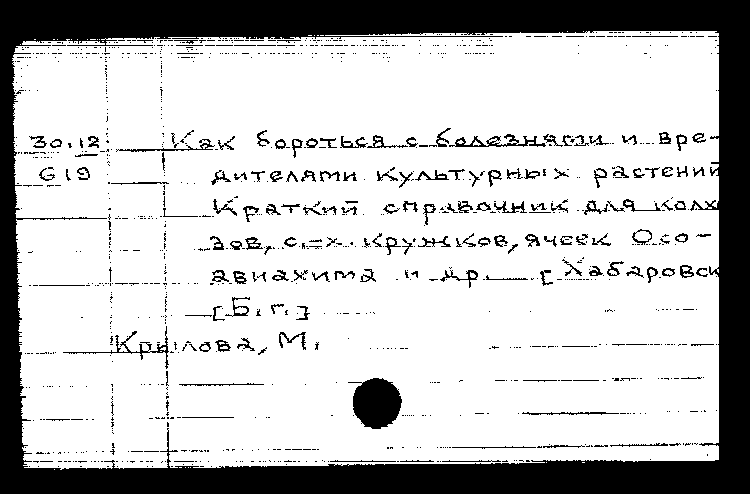 30.12 Как бороться с болезнями и вре-
G19 дителями культурных растений
Краткий справочник для колх
зов, с.-х. кружков, ячеек Осо-
авиахима и др. [Хабаровск
[Б. г.]
Крылова, М.